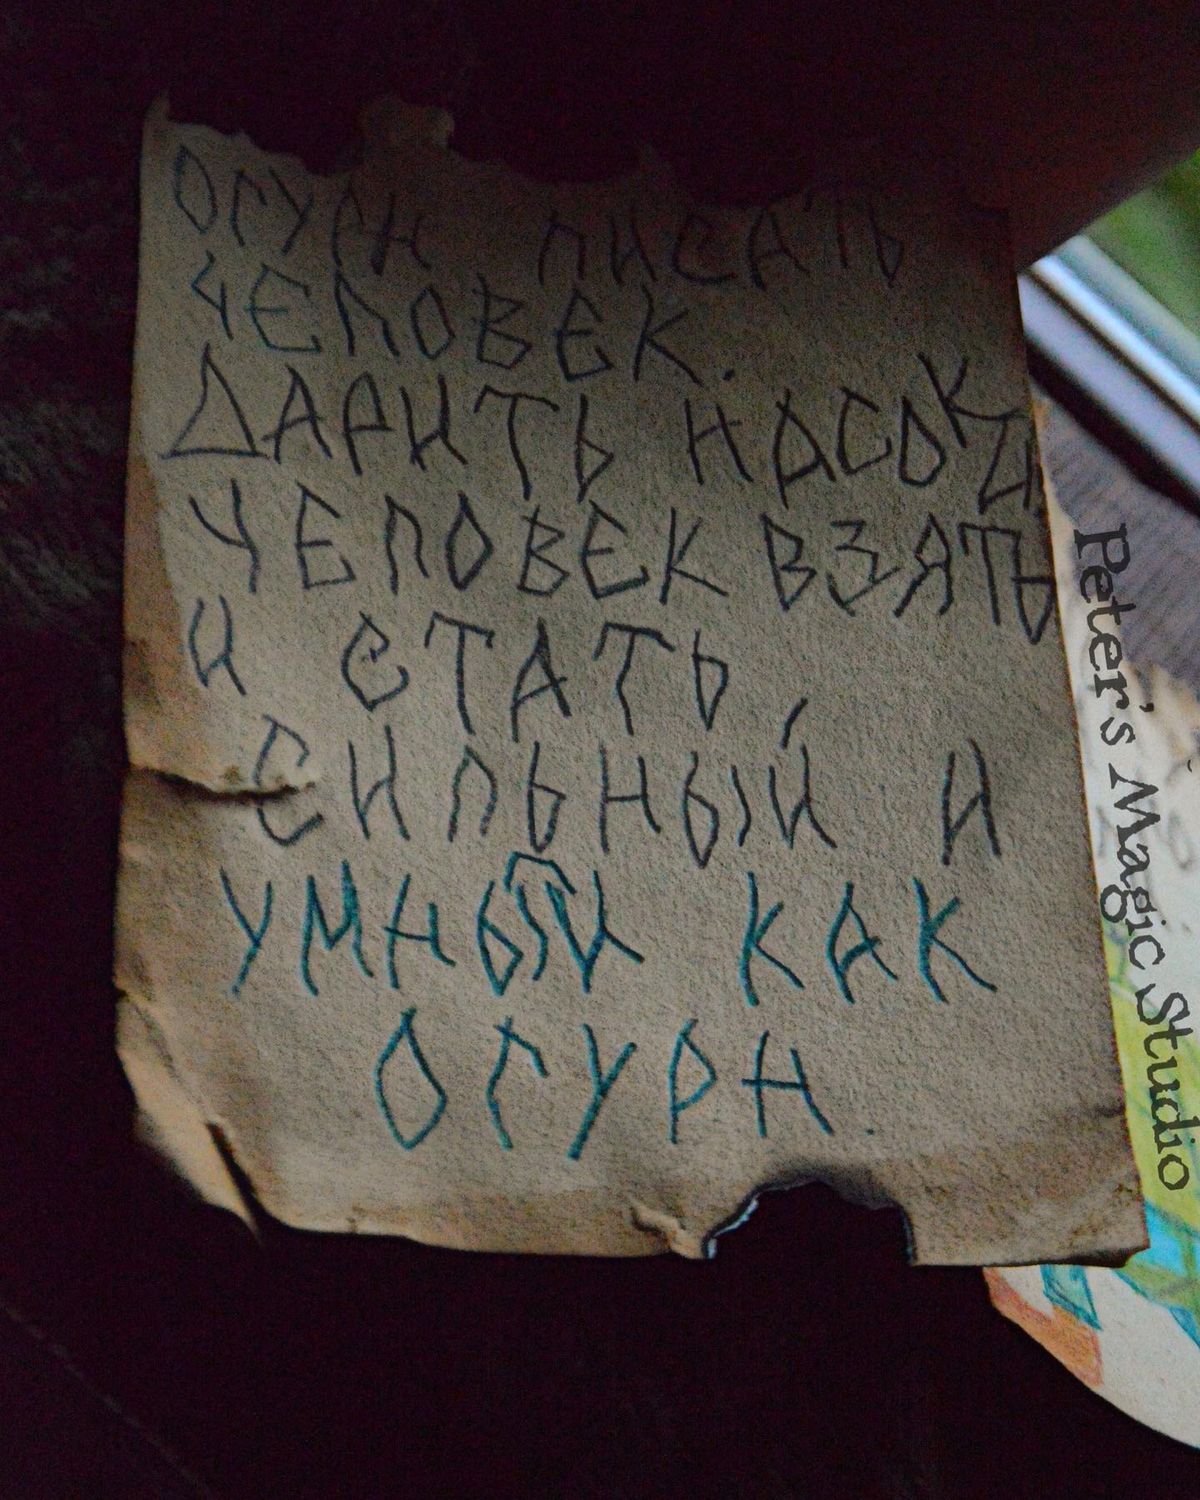 ОГУРН ПИСАТЬ
ЧЕЛОВЕК.
ДАРИТЬ НАСОК
ЧЕЛОВЕК ВЗЯТЬ
И СТАТЬ
СИЛЬНЫЙ И
УМНЫЙ КАК
ОГУРН.
Peter's Magic Studio